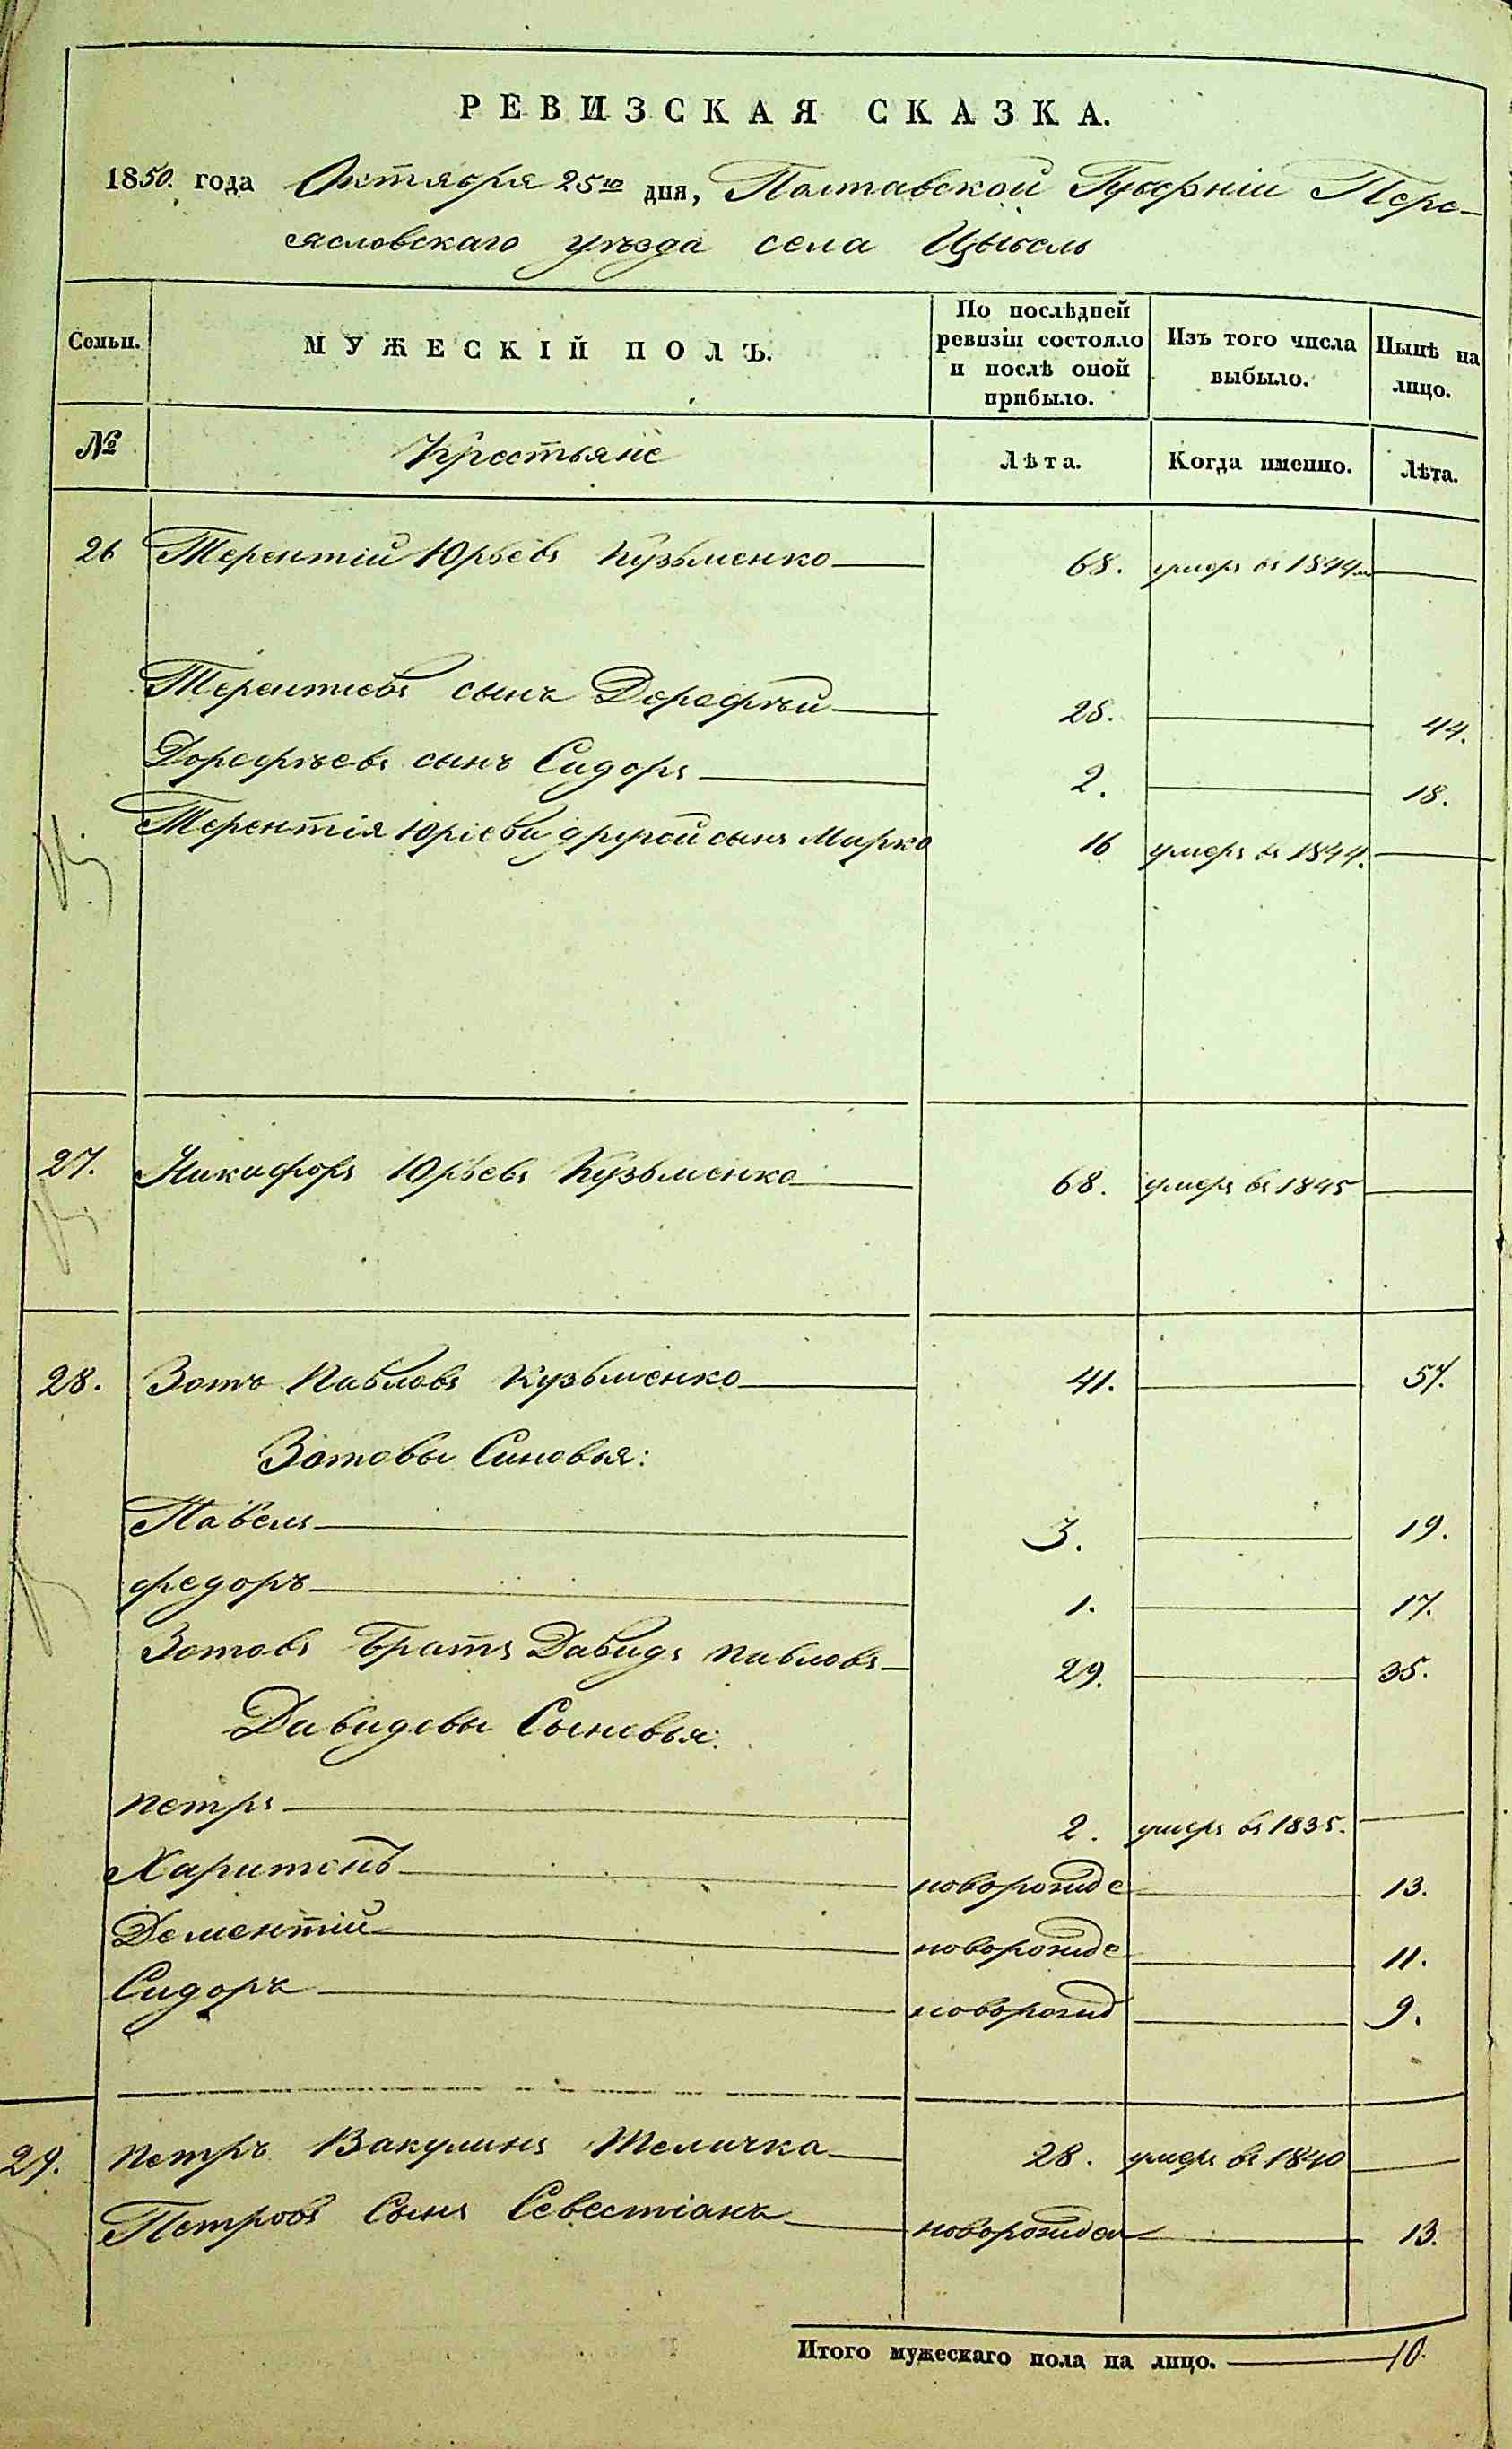 РЕВИЗСКАЯ СКАЗКА.
1850. года Октября 25го дня, Полтавской Губерніи Пере-
яславскаго уѣзда села Цыбель
Семьи. МУЖЕСКІЙ ПОЛЪ. По послѣдней ревизіи состояло и послѣ оной прибыло. Изъ того числа выбыло. Нынѣ на лицо.
№ Крестьяне Лѣта. Когда именно. Лѣта.
26 Терентій Юрьевъ Кузьменко 68. умеръ въ 1844
Терентиевъ сынъ Дорофѣй 28. 44.
Дорофѣевъ сынъ Сидоръ 2. 18.
Терентія Юріева другой сынъ Марко 16 умеръ въ 1844.
27. Никифоръ Юрьевъ Кузьменко 68. умеръ въ 1845
28. Зотъ Павловъ Кузьменко 41. 57.
Зотовы Синовья:
Павелъ 3. 19.
федоръ 1. 17.
Зотовъ Братъ Давидъ павловъ 29. 35.
Давидовы Сыновья:
петръ 2. умеръ въ 1835.
Харитонъ новорожде 13.
Дементій новорожде 11.
Сидоръ новорожд 9.
29. петръ Вакулинъ Теличка 28. умеръ въ 1840
Петровъ Сынъ Севестіанъ новорожден 13.
Итого мужескаго пола на лицо. 10.